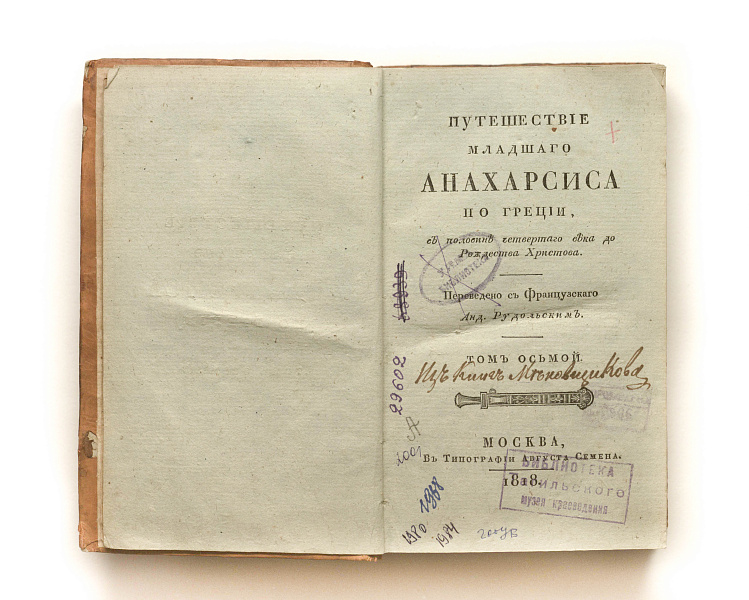 ПУТЕШЕСТВІЕ
МЛАДШАГО
АНАХАРСИСА
ПО ГРЕЦІИ,
въ половинѣ четвертаго вѣка до
Рождества Христова.
БИБЛИОТЕКА
Переведено съ Французскаго
Анд. Рудольскимъ.
ТОМЪ ОСЬМОЙ
Изъ Книгъ Мѣновщикова
МОСКВА,
Въ Типографіи Августа Семена.
1818.
БИБЛИОТЕКА
музея краеведения
29602
А
1001
1988
1980
1984